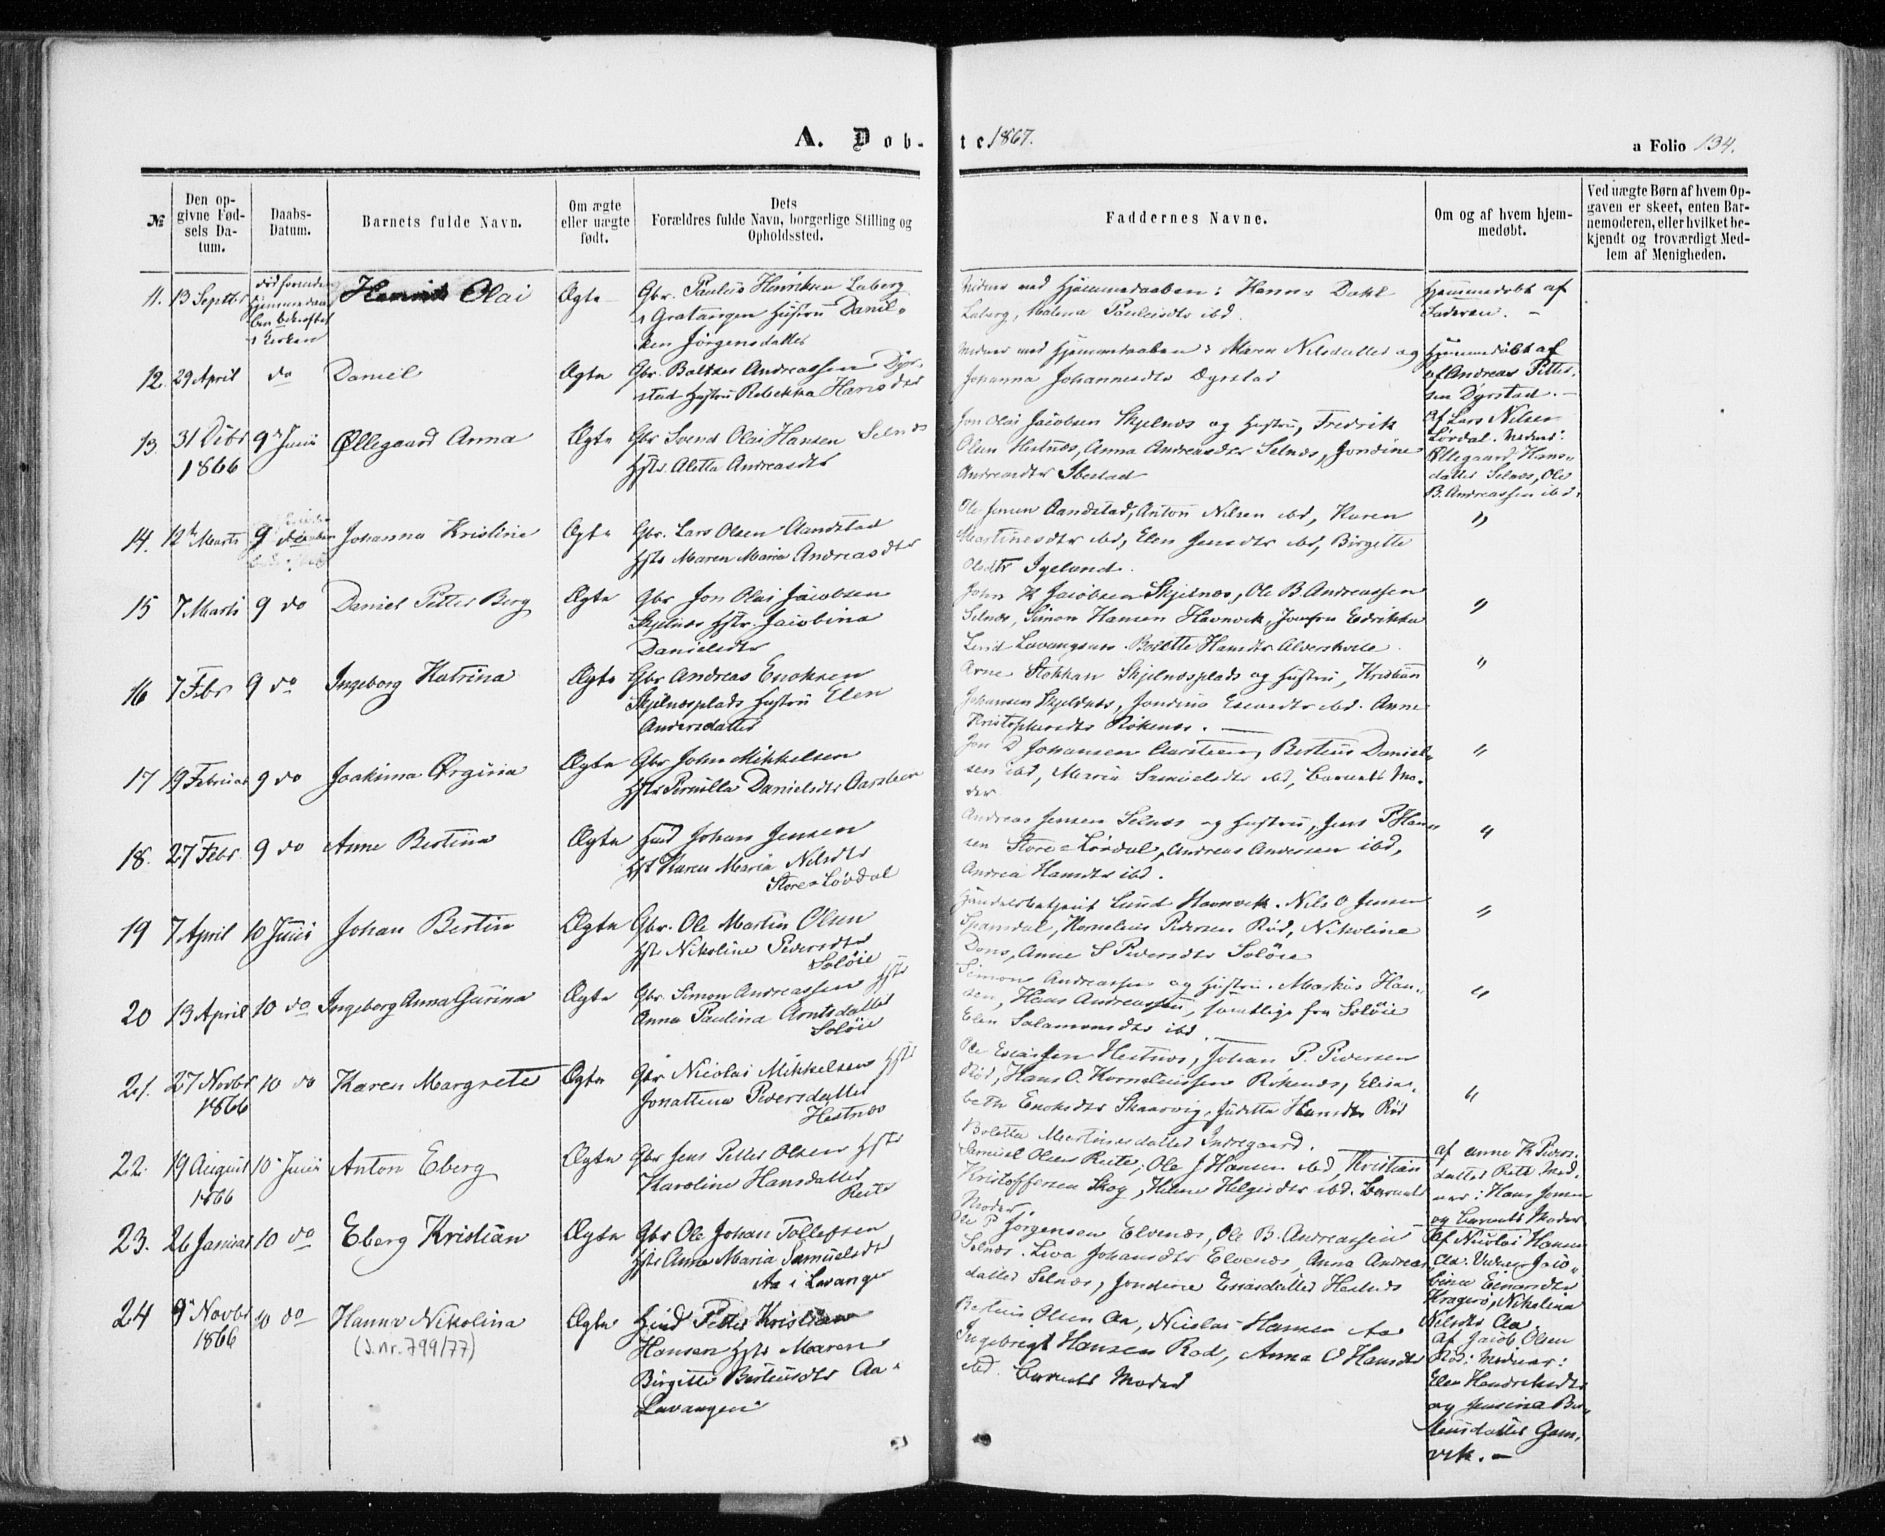 A. Dob-
te 1867.
a Folio 134.
№
Den op-
givne Fød-
sels Da-
tum.
Daabs-
Datum.
Barnets fulde Navn.
Om ægte
eller uægte
født.
Dets
Forældres fulde Navn, borgerlige Stilling og
Opholdssted.
Faddernes Navne.
Om og af hvem hjem-
medøbt.
Ved uægte Børn af hvem Op-
gaven er skeet, enten Bar-
nemoderen, eller hvilket be-
kjendt og troværdigt Med-
lem af Menigheden.
11. 13 Septbr
ben bekræftet
i Kirken
Olai
Ægte
Gbr. Paulus Henriksen Laberg
i Gratangen Hustru Danil-
ken Jörgensdatter
Vidner ved Hjemmedaaben: Hanna Dahl
Laberg, Malena Paulsdtr ibd.
Hjemmedøbt af
Faderen. –
12. 29 April do Daniel Ægte
Gbr. Baltser Andreassen Dyr-
stad Hustru Rebekka Hansdtr
Vidner ved Hjemmedaaben: Maren Nilsdatter og
Johanna Johannesdtr Dyrstad
Hjemmedøbt af
af Andreas Petter-
sen Dyrstad. –
13. 31 Decbr 9de Juni Øllegaard Anna Ægte
1866
Gbr Svend Olai Hansen Selnes
Hstr. Aletta Andreasdtr
Jon Olai Jacobsen Skjelnes og Hustru, Fredrik
Olsen Hestnes, Anna Andreasdtr Selnes, Jondine
Andreasdtr Ibestad
Af Lars Nilsen
Lördal. Vidner:
Øllegaard Hans-
datter Selnes, Ole
B. Andreassen ibd.
14. 12te Marts 9 do Johanna Kristine Ægte
Gbr. Lars Olsen Aandstad
Hstr Maren Maria Andreasdtr
Ole Jensen Aandstad, Anton Nilsen ibd, Karen
Martinesdtr ibd, Elen Jensdtr ibd, Birgitte
Olsdtr Igelund.
"
15 7 Marts 9 do Daniel Petter Berg Ægte
Gbr Jon Olai Jacobsen
Skjelnes Hstr. Jacobina
Danielsdtr
John K Jacobsen Skjelnes, Ole B. Andreassen
Selnes, Simon Hansen Havnvik, Jomfru Edrikka
Lind Lavangsnes. Bolette Hansdtr Alvershvile
"
16 7 Febr 9 do Ingeborg Katrina Ægte
Gbr Andreas Enoksen
Skjelnesplads Hustru Elen
Andersdatter
Arne Stokkan Skjelnesplads og Hustru, Kristian
Johansen Skjelnes, Jondine Esaiasdtr ibd. Anne
Kristophersdtr Rökenes. –
"
17 19 Februar 9 do Joakima Ørgina Ægte
Gbr John Mikkelsen
Hstr Pernilla Danielsdtr Aarsteen
Jon D Johansen Aarsteen, Berteus Daniel-
sen ibd, Maria Samuelsdtr ibd, Barnets Mo-
der
"
18. 27 Febr. 9 do Anne Bertina Ægte
Ind Johan Jensen
Hst Karen Maria Nilsdtr
Store-Lövdal
Andreas Jensen Selnes og Hustru, Jens P Han-
sen Store-Lövdal, Andreas Andersen ibd,
Andrea Hansdtr ibd.
"
19 7 April 10 Juni Johan Bertin Ægte
Gbr. Ole Martin Olsen
Hst Nikoline Pedersdtr
Soløie
Handelsbetjent Lund Havnvik. Nils O Jensen
Spansdal, Kornelius Pedersen Röd, Nikoline
Dons, Anne S Pedersdtr Soløie
"
20 13 April 10 do Ingeborg Anna Gurina Ægte
Gbr. Simon Andreassen Hstr
Anna Paulina Arntsdatter
Soløie
Simon Andreassen og Hustru. Markus Han-
sen, Hans Andreassen, samtlige fra Soløie
Elen Salamonsdtr ibd.
"
21. 27 Novbr 10 do Karen Margrete Ægte
1866
Gbr Nicolai Mikkelsen Hstr
Jonattena Pedersdatter
Hestnes
Ole Esaiassen Hestnes, Johan P. Pedersen
Röd, Hans O. Korneliussen Rökenes, Elisa-
beth Enoksdtr Skaarvig, Juditta Hansdtr Röd
"
22. 19 August 10 Juni Anton Eberg Ægte
1866
Gbr Jens Petter Olsen Hst
Karoline Hansdatter
Reite
Bolette Martinusdatter Indregaard.
Samuel Olsen Reite, Ole J Hansen ibd, Kristian
Kristoffersen Skog, Helene Helgesdtr ibd. Barnets
Moder.
af Anne K Peders-
datter Reite Vid-
ner: Hans Jensen
og Barnets Moder
23. 26 Januar 10 do Eberg Kristian Ægte
Gbr Ole Johan Tollefsen
Hstr Anne Maria Samuelsdtr
Aa i Lavangen
Ole P Jörgensen Elvenes, Ole B. Andreassen
Selnes. Lina Johansdtr Elvenes, Anna Andreas-
datter Selnes, Jondine Esaiasdatter Hestnes
Af Nicolai Hansen
Aa. Vidner: Jaco-
bina Einarsdtr
Kragerö, Nikolina
Nilsdtr Aa.
24 9de Novbr 10 do Hanna Nikolina Ægte
1866
(J.nr. 799/77)
Ind Petter Kristian
Hansen Hstr Maren
Birgitte Berteusdtr Aa-
Lavangen
Berteus Olsen Aa, Nicolai Hansen Aa
Ingebregt Hansen Röd, Anna O Hansdtr
ibd. Barnets Moder
af Jacob Olsen
Röd: Vidner:
Elen Hendriksdtr
og Jensina Ber-
teusdatter Gam-
vik. –